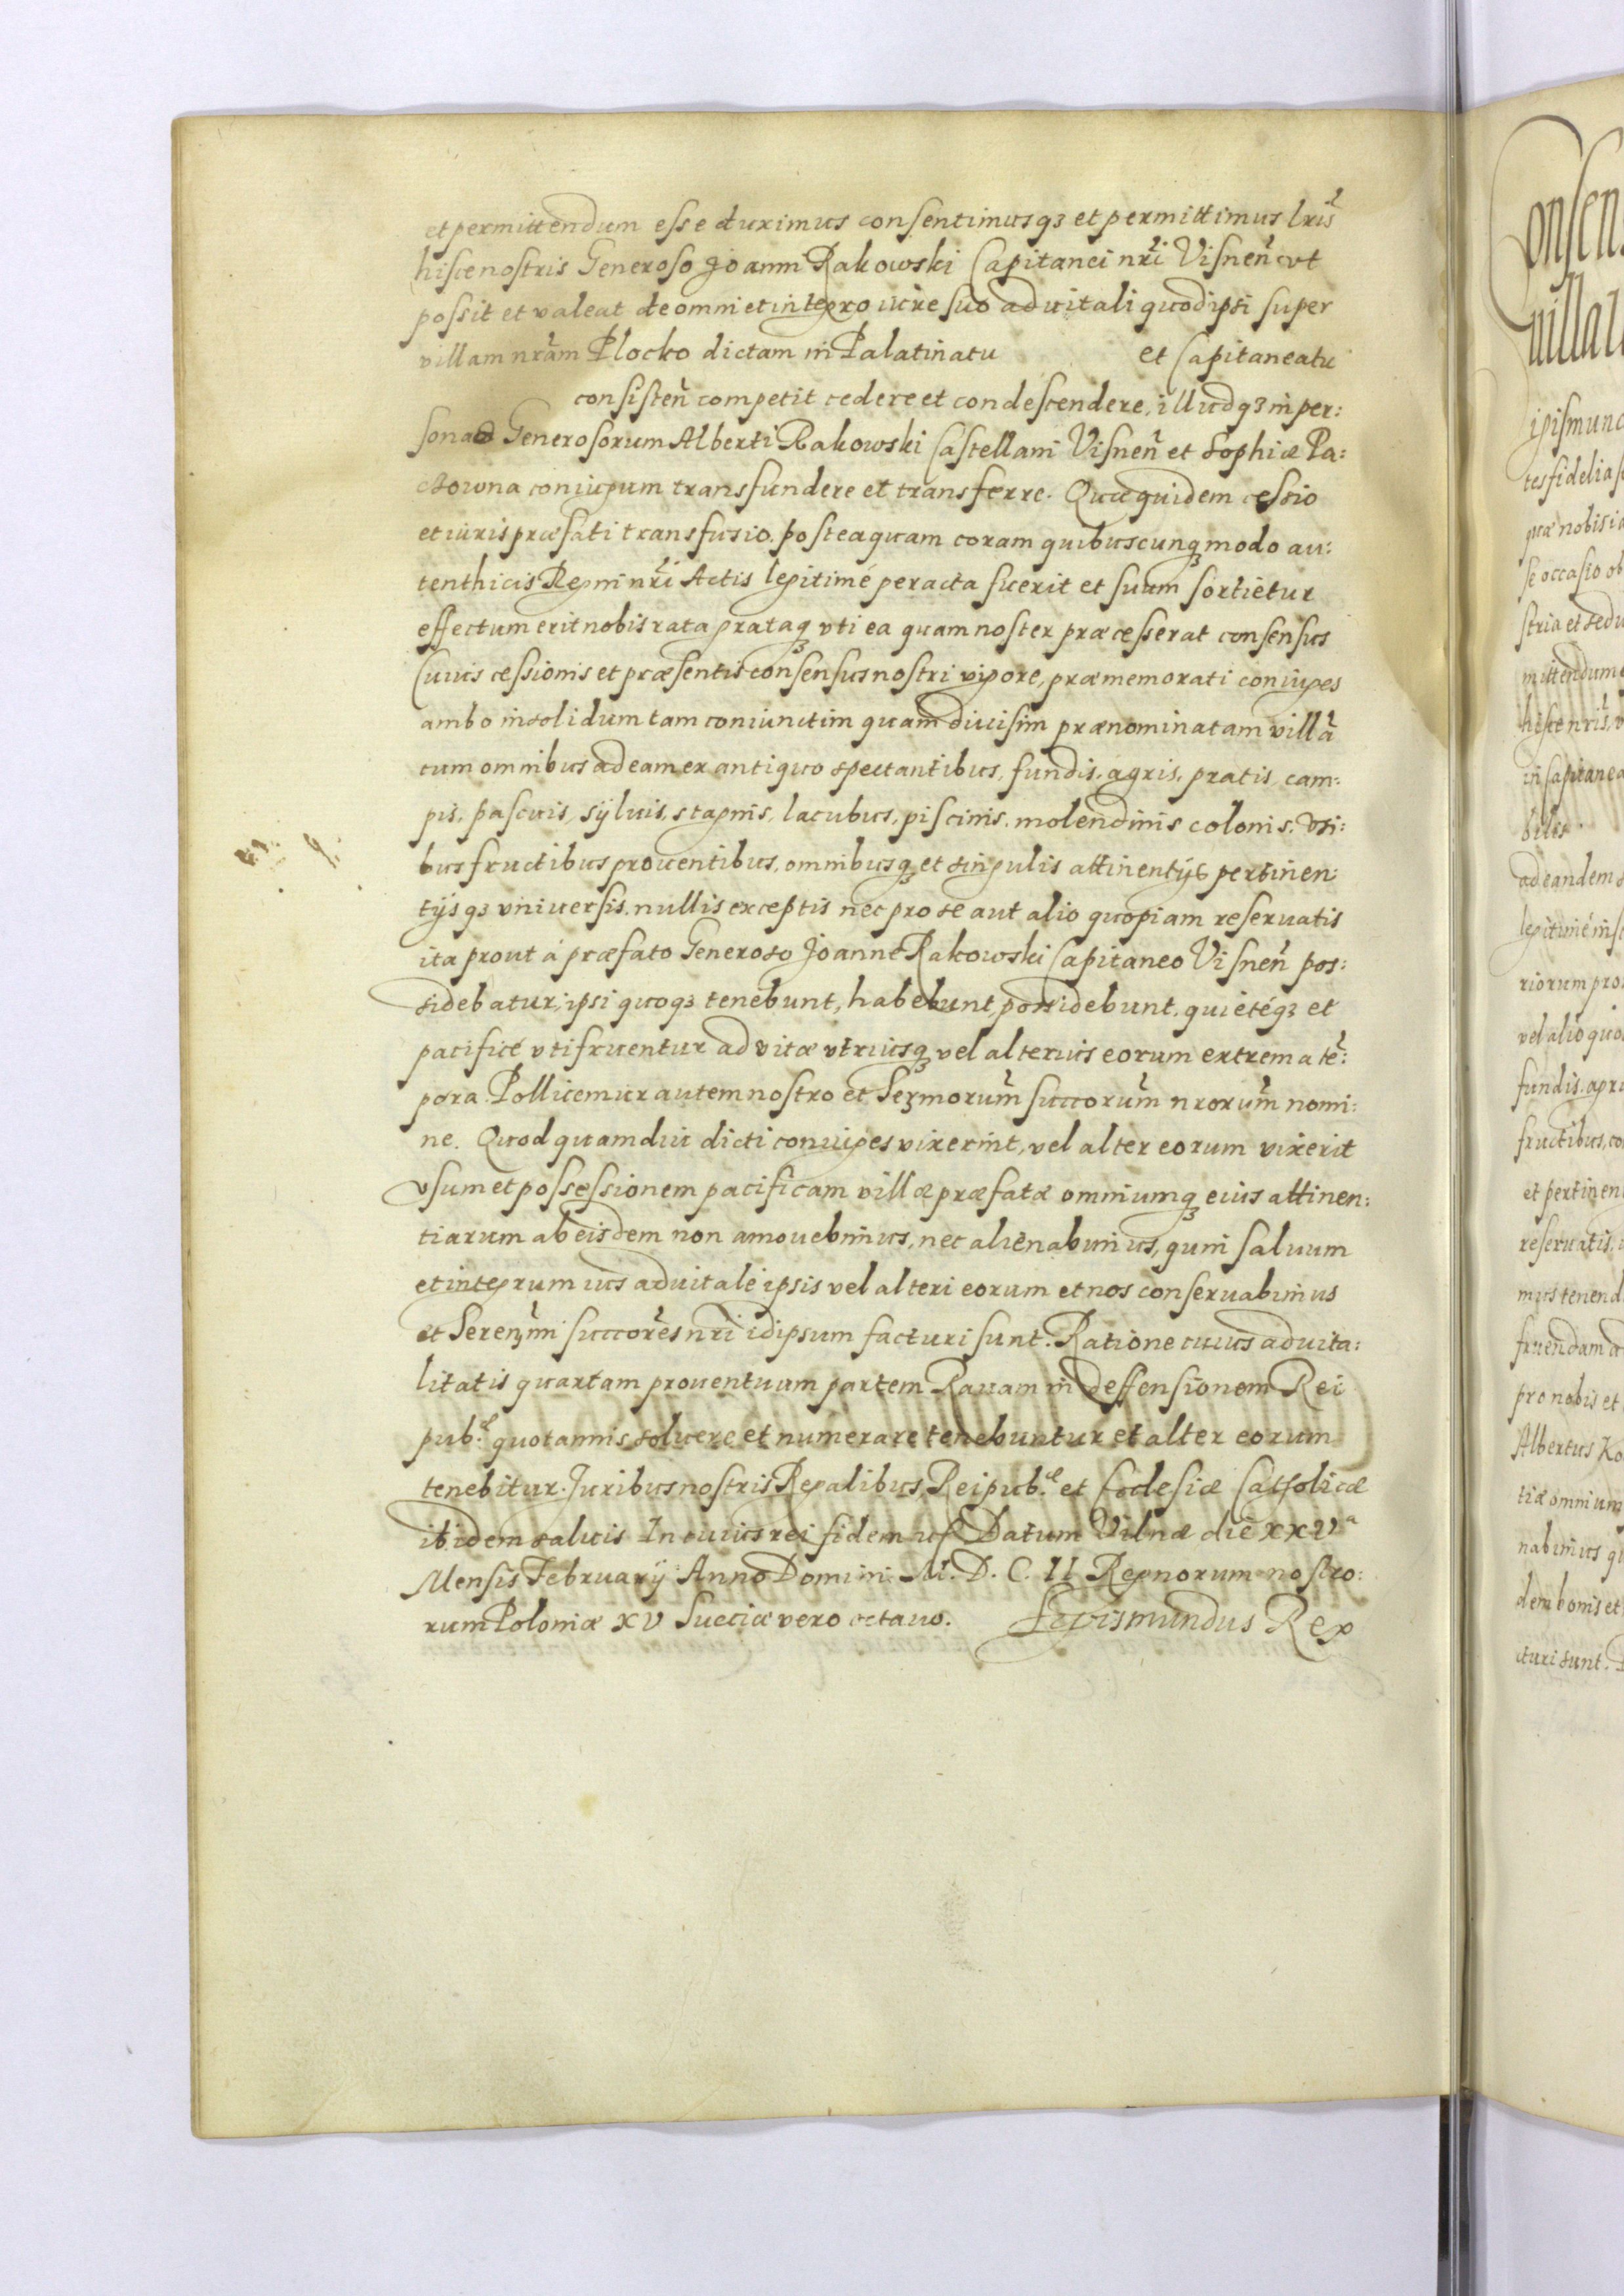 et permittendum esse duximus consentimusqꝫ et permittimus lris̃
hisce nostris Generoso Joanni Rakowski Capitanei nr̃i Visneñ ut
possit et valeat de omni et integro iure suo aduitali quod ipsi super
villam nr̃am Plocko dictam in Palatinatu et Capitaneatu
consisteñ competit cedere et condescendere, illudqꝫ in per:
sonas Generosorum Alberti Rakowski Castellani Visneñ et Sophiæ Pa:
cowna coniugum transfundere et transferre. Quæ quidem cessio
et iuris præfati transfusio, posteaquam coram quibuscunqꝫ modo au:
tenthicis Regni nr̃i Actis legitimé peracta fuerit et suum sortietur
effectum erit nobis rata grataqꝫ vti ea quam noster præcesserat consensus
Cuius cessionis et præsentis consensus nostri vigore, præmemorati coniuges
ambo insolidum tam coniunctim quam diuisim prænominatam villã
cum omnibus ad eam ex antiquo spectantibus, fundis, agris, pratis, cam:
pis, pascuis, syluis, stagnis, lacubus, piscinis, molendinis colonis, vsi:
bus fructibus prouentibus, omnibusqꝫ et singulis attinentijs pertinen:
tijsqꝫ vniuersis, nullis exceptis nec pro se aut alio quopiam reseruatis
ita prout á præfato Generoso Joanne Rakowski Capitaneo Visneñ pos:
sidebatur, ipsi quoqꝫ tenebunt, habebunt, possidebunt, quietéqꝫ et
pacificé vtifruentur ad vitæ vtriusqꝫ vel alterius eorum extrema tẽ:
pora. Pollicemur autem nostro et Serꝫmorum̃ succorum̃ nrorum̃ nomi:
ne. Quod quamdiu dicti coniuges vixerint, vel alter eorum vixerit
vsum et possessionem pacificam villæ præfatæ omniumqꝫ eius attinen:
tiarum ab eisdem non amouebimus, nec alienabimus, quin saluum
et integrum ius aduitale ipsis vel alteri eorum et nos conseruabimus
et Serenꝫmi succores̃ nr̃i idipsum facturi sunt. Ratione cuius aduita:
litatis quartam prouentuum partem Rauam in deffensionem Rei
pub.æ quotannis soluere et numerare tenebuntur et alter eorum
tenebitur. Juribus nostris Regalibus, Reipub.æ et Ecclesiæ Catholicæ
ibidem saluis In cuius rei fidem uſ Datum Vilnæ die XXVa
Mensis February Anno Domini. M. D. C. II Regnorum nostro:
rum Poloniæ XV Sueciæ vero octauo. Sigismundus Rex
onsen
villal
ipismund
tes fidelia s
quæ nobis i
se occasio ob
stria et sedu
mittendum e
hisce nris̃, v
in Capitanea
ad eandem s
legitimé ins
riorum pro
vel alio quo
fundis, agri
fructibus, co
et pertinen
reseruatis,
mus tenend
fruendam a
pro nobis et
Albertus Ko
tiæ omnium
nabimus qu
dem bonis et
cturi sunt.